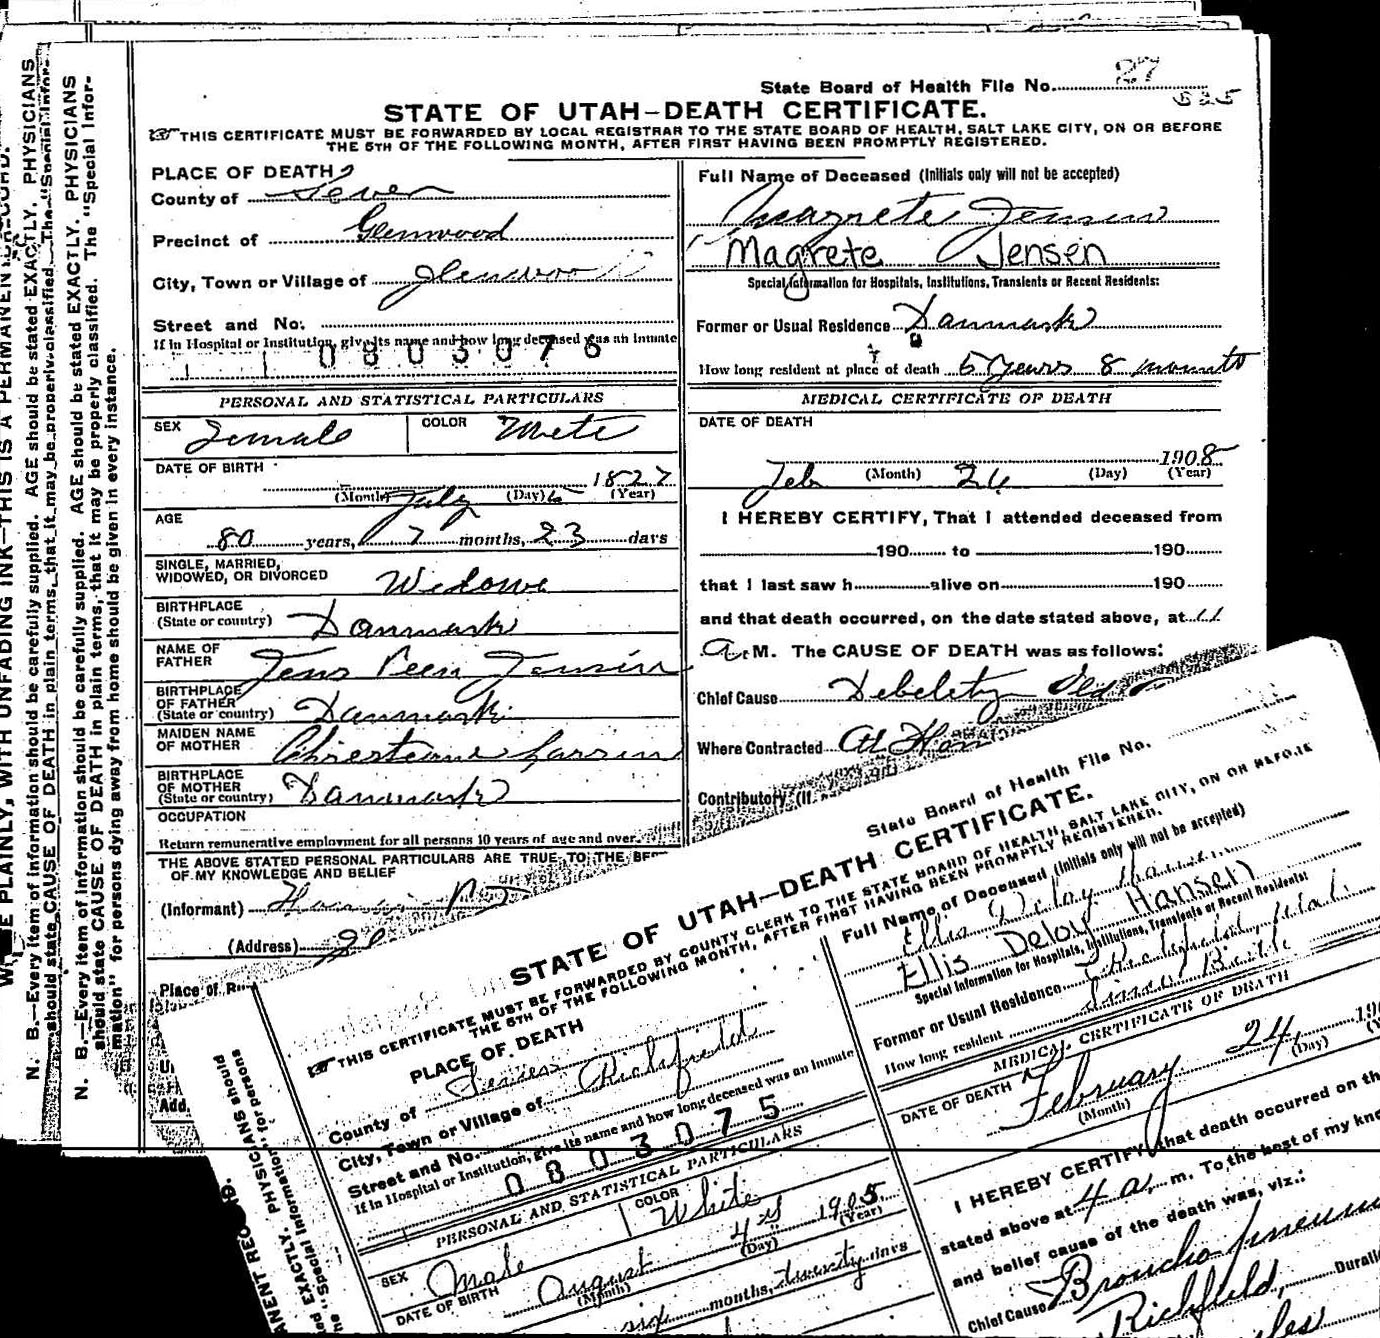 State Board of Health File No. 27
535
STATE OF UTAH—DEATH CERTIFICATE.
THIS CERTIFICATE MUST BE FORWARDED BY LOCAL REGISTRAR TO THE STATE BOARD OF HEALTH, SALT LAKE CITY, ON OR BEFORE
THE 5TH OF THE FOLLOWING MONTH, AFTER FIRST HAVING BEEN PROMPTLY REGISTERED.
PLACE OF DEATH
County of Sevier
Precinct of Glenwood
City, Town or Village of Glenwood
Street and No.
If in Hospital or Institution, give its name and how long deceased was an Inmate
0803076
PERSONAL AND STATISTICAL PARTICULARS
SEX Female COLOR White
DATE OF BIRTH
1827
(Month) July (Day) (Year)
AGE
80 years, 7 months, 23 days
SINGLE, MARRIED,
WIDOWED, OR DIVORCED Widowe
BIRTHPLACE
(State or country) Danmark
NAME OF
FATHER Jens Peen Jensin
BIRTHPLACE
OF FATHER
(State or country) Danmark
MAIDEN NAME
OF MOTHER Christeane Larsin
BIRTHPLACE
OF MOTHER
(State or country) Danmark
OCCUPATION
Return remunerative employment for all persons 10 years of age and over.
THE ABOVE STATED PERSONAL PARTICULARS ARE TRUE TO THE
OF MY KNOWLEDGE AND BELIEF
(Informant)
(Address) Gl
Place of
Full Name of Deceased (Initials only will not be accepted)
Magrete Jensin
Magrete Jensen
Special Information for Hospitals, Institutions, Transients or Recent Residents:
Former or Usual Residence Danmark
How long resident at place of death 5 years 8 mounts
MEDICAL CERTIFICATE OF DEATH
DATE OF DEATH
1908
Feb (Month) 24 (Day) (Year)
I HEREBY CERTIFY, That I attended deceased from
190 to 190
that I last saw h alive on 190
and that death occurred, on the date stated above, at 11
A. M. The CAUSE OF DEATH was as follows:
Chief Cause Debelety Old
Where Contracted At Hom
Contributory (If
N. B.—Every item of information should be carefully supplied. AGE should be stated EXACTLY. PHYSICIANS
should state CAUSE OF DEATH in plain terms, that it may be properly classified. The "Special Infor-
mation" for persons dying away from home should be given in every instance.
PLAINLY, WITH UNFADING INK—THIS IS A PERMANENT RECORD.
N. B.—Every item of information should be carefully supplied. AGE should be stated EXACTLY. PHYSICIANS
should state CAUSE OF DEATH in plain terms, that it may be properly classified. The "Special Infor-
State Board of Health File No.
STATE OF UTAH—DEATH CERTIFICATE.
THIS CERTIFICATE MUST BE FORWARDED BY COUNTY CLERK TO THE STATE BOARD OF HEALTH, SALT LAKE CITY, ON OR BEFORE
THE 5TH OF THE FOLLOWING MONTH, AFTER FIRST HAVING BEEN PROMPTLY REGISTERED.
PLACE OF DEATH
County of Sevier
City, Town or Village of Richfield
Street and No.
If in Hospital or Institution, give its name and how long deceased was an Inmate
0803075
PERSONAL AND STATISTICAL PARTICULARS
SEX Male COLOR White
DATE OF BIRTH August 4th 1905
(Month) (Day) (Year)
six months, twenty days
Full Name of Deceased (Initials only will not be accepted)
Ellis Deloy Hansen
Ellis Deloy Hansen
Special Information for Hospitals, Institutions, Transients or Recent Residents:
Former or Usual Residence Richfield, Utah
How long resident Since Birth
MEDICAL CERTIFICATE OF DEATH
DATE OF DEATH February 24, 190
(Month) (Day)
I HEREBY CERTIFY, that death occurred on th
stated above at 4 a. m. To the best of my kno
and belief cause of the death was, viz.:
Chief Cause Broncho pneum
Richfield,
Durati
PHYSICIANS should